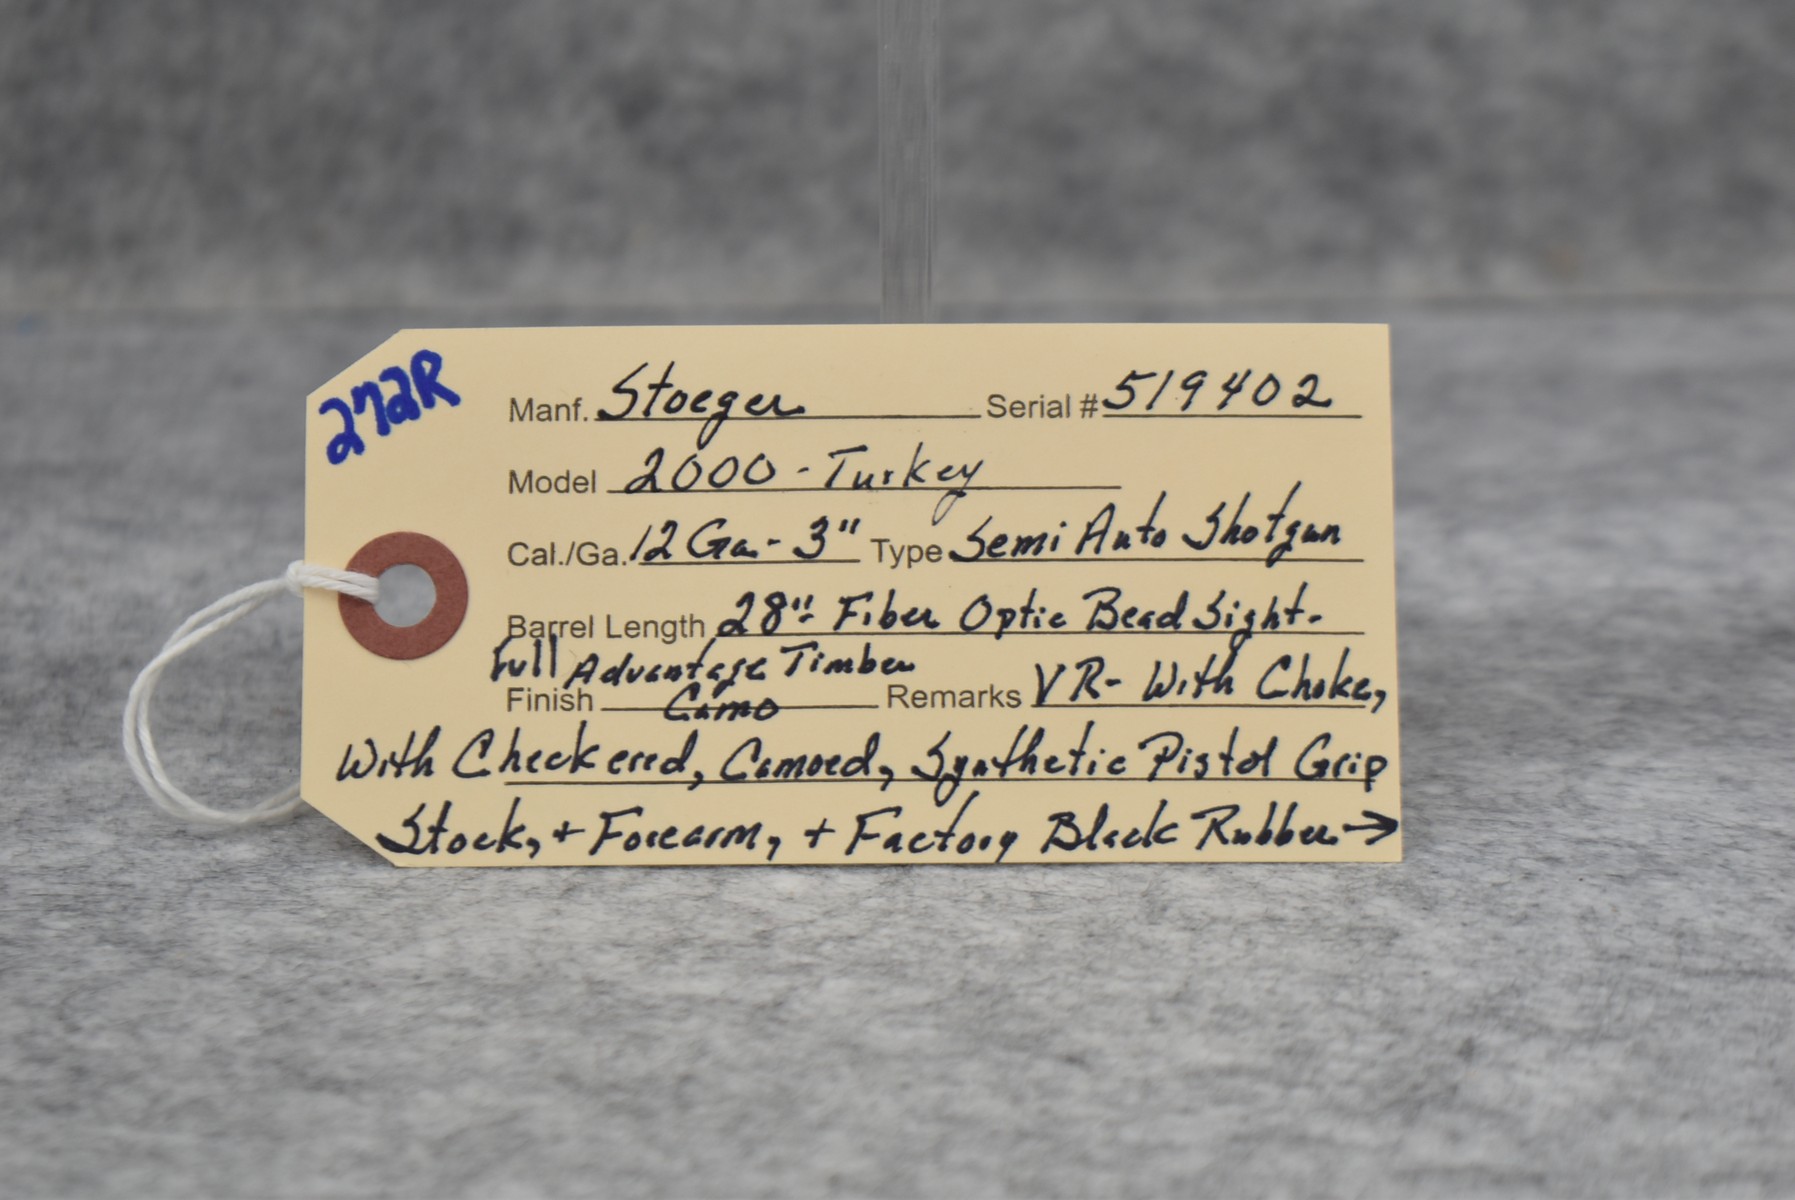 272R
Manf. Stoeger Serial # 519402
Model 2000 - Turkey
Cal./Ga. 12 Ga. - 3" Type Semi Auto Shotgun
Barrel Length 28" - Fiber Optic Bead Sight -
Full Advantage Timber
Finish Camo Remarks VR - With Choke,
With Checkered, Camoed, Synthetic Pistol Grip
Stock, + Forearm, + Factory Black Rubber →